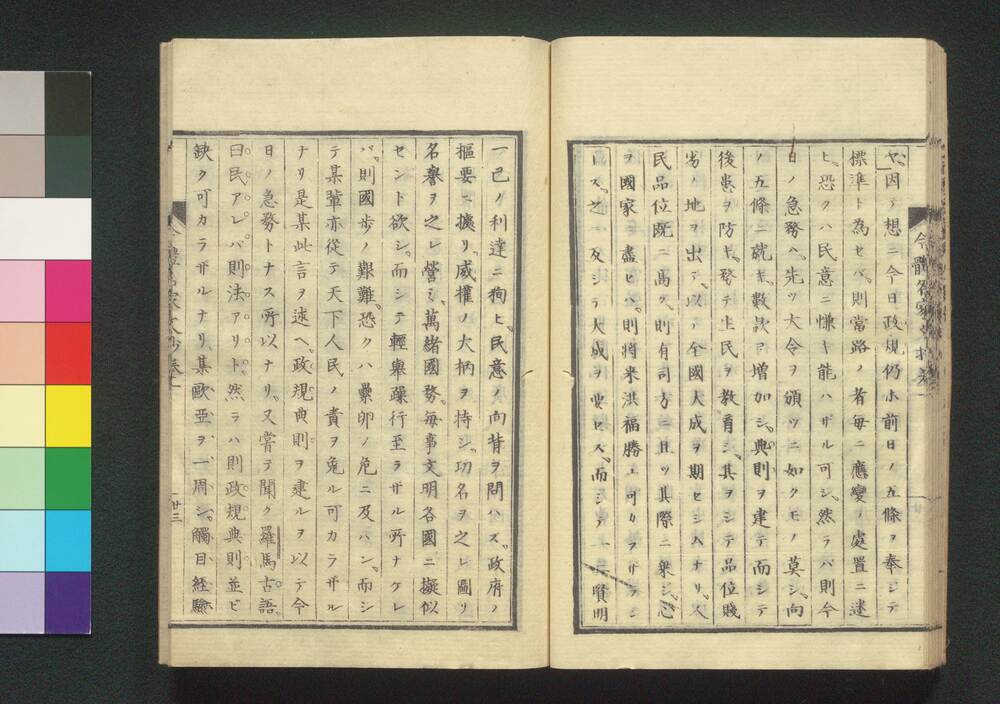 ヤ、因テ想ニ今日政規仍ホ前日ノ五條ヲ奉シテ
標準ト為セバ、則當路ノ者毎ニ應變ノ處置ニ迷
ヒ、恐クハ民意ニ慊キ能ハザル可シ、然ラバ則今
日ノ急務ヘ、先ツ大令ヲ頒ツニ如クモノ莫シ、向
ノ五條ニ就キ、數款ヲ増加シ、典則ヲ建テ而シテ
後患ヲ防キ、務テ生民ヲ教育シ、其ヲシテ品位賤
劣ノ地ヲ出テ、以テ全國大成ヲ期セシヘナリ、人
民品位既ニ高ク、則有司方ニ且ツ其際ニ衆シ、忠
ヲ國家ニ盡ヒハ、則將来洪福勝エ可カラザラン
ス、之ニ反シテ大成ヲ要セス、而シテ一二賢明
一己ノ利達ニ狥ヒ、民意ノ向背ヲ問ハズ、政府ノ
樞要ニ據リ、威權ノ大柄ヲ持シ、功名ヲ之レ圖リ
名譽ヲ之レ營ミ、萬緒國務、毎事文明各國ニ擬似
セント欲シ、而シテ輕擧躁行至ラザル所ナケレ
バ、則國歩ノ艱難、恐クハ纍卵ノ危ニ及ハン、而シ
テ某輩亦從テ天下人民ノ責ヲ免ル可カラザル
ナリ是某此言ヲ述ヘ、政規典則ヲ建ルヲ以テ今
日ノ急務トナス所以ナリ、又嘗テ聞ク羅馬古語、
曰民アレバ則法アリト、然ラハ則政規典則並ビ
缺ク可カラザルナリ、某歐亞ヲ一周シ、觸目經驗
廿三